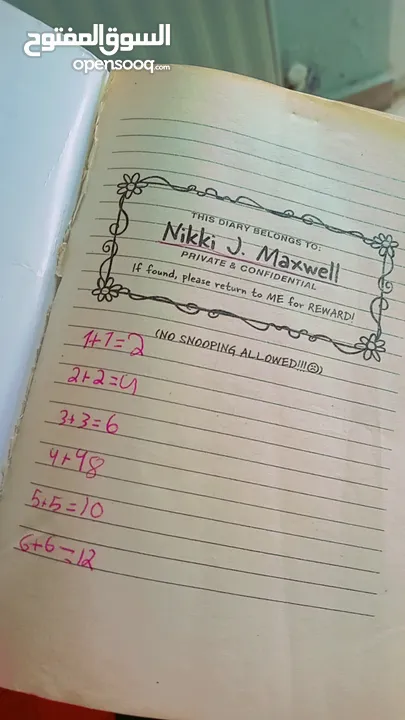 السوق المفتوح
opensooq.com
THIS DIARY BELONGS TO:
Nikki J. Maxwell
PRIVATE & CONFIDENTIAL
If found, please return to ME for REWARD!
(NO SNOOPING ALLOWED!!!☹)
1+1=2
2+2=4
3+3=6
4+98
5+5=10
6+6=12